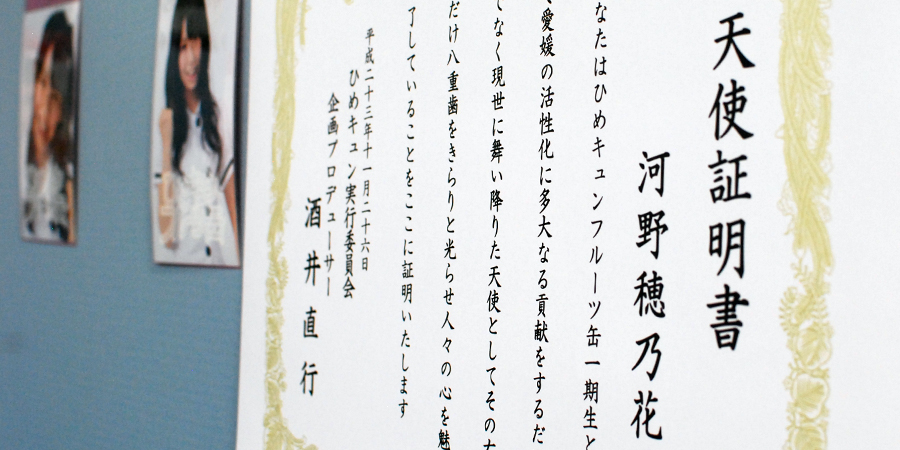 天使証明書
河野穂乃花
なたはひめキュンフルーツ缶一期生と
愛媛の活性化に多大なる貢献をするだ
てなく現世に舞い降りた天使としてその
だけ八重歯をきらりと光らせ人々の心を魅
了していることをここに証明いたします
平成二十三年十一月二十六日
ひめキュン実行委員会
企画プロデューサー
酒井直行